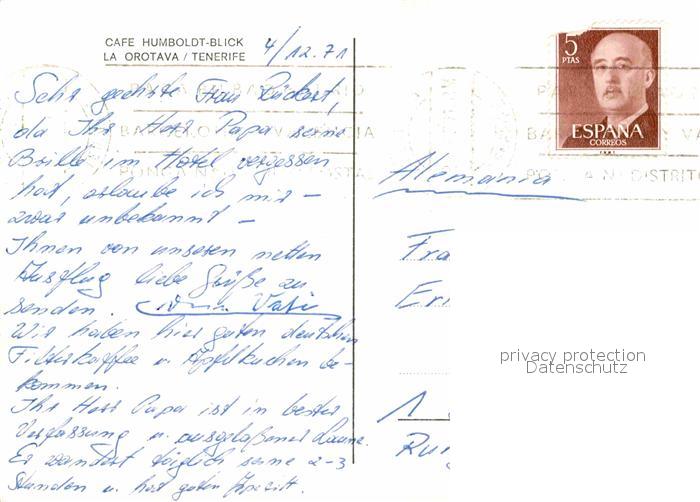 CAFE HUMBOLDT-BLICK
LA OROTAVA / TENERIFE
4/12.71
Sehr geehrte Frau Rückert,
da Ihr Herr Papa seine
Brille im Hotel vergessen
hat, erlaube ich mir –
zwar unbekannt –
Ihnen von unserem netten
Ausflug liebe Grüße zu
senden. Vati
Wir haben hier guten deutschen
Filterkaffee u. Apfelkuchen be-
kommen.
Ihr Herr Papa ist in bester
Verfassung u. ausgelaßener Laune.
Er wandert täglich seine 2-3
Stunden u. hat guten Appetit.
5
PTAS
ESPAÑA
CORREOS
Alemania
Fra
Er
1
privacy protection
Datenschutz